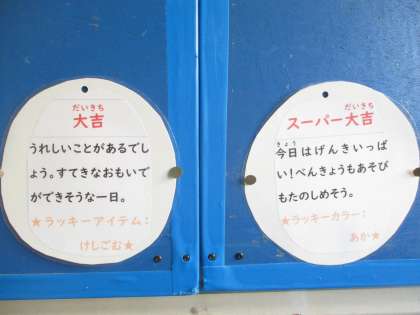 だいきち
大吉
うれしいことがあるでし
ょう。すてきなおもいで
ができそうな一日。
★ラッキーアイテム：
けしごむ★
だいきち
スーパー大吉
きょう
今日はげんきいっぱ
い！べんきょうもあそび
もたのしめそう。
★ラッキーカラー：
あか★